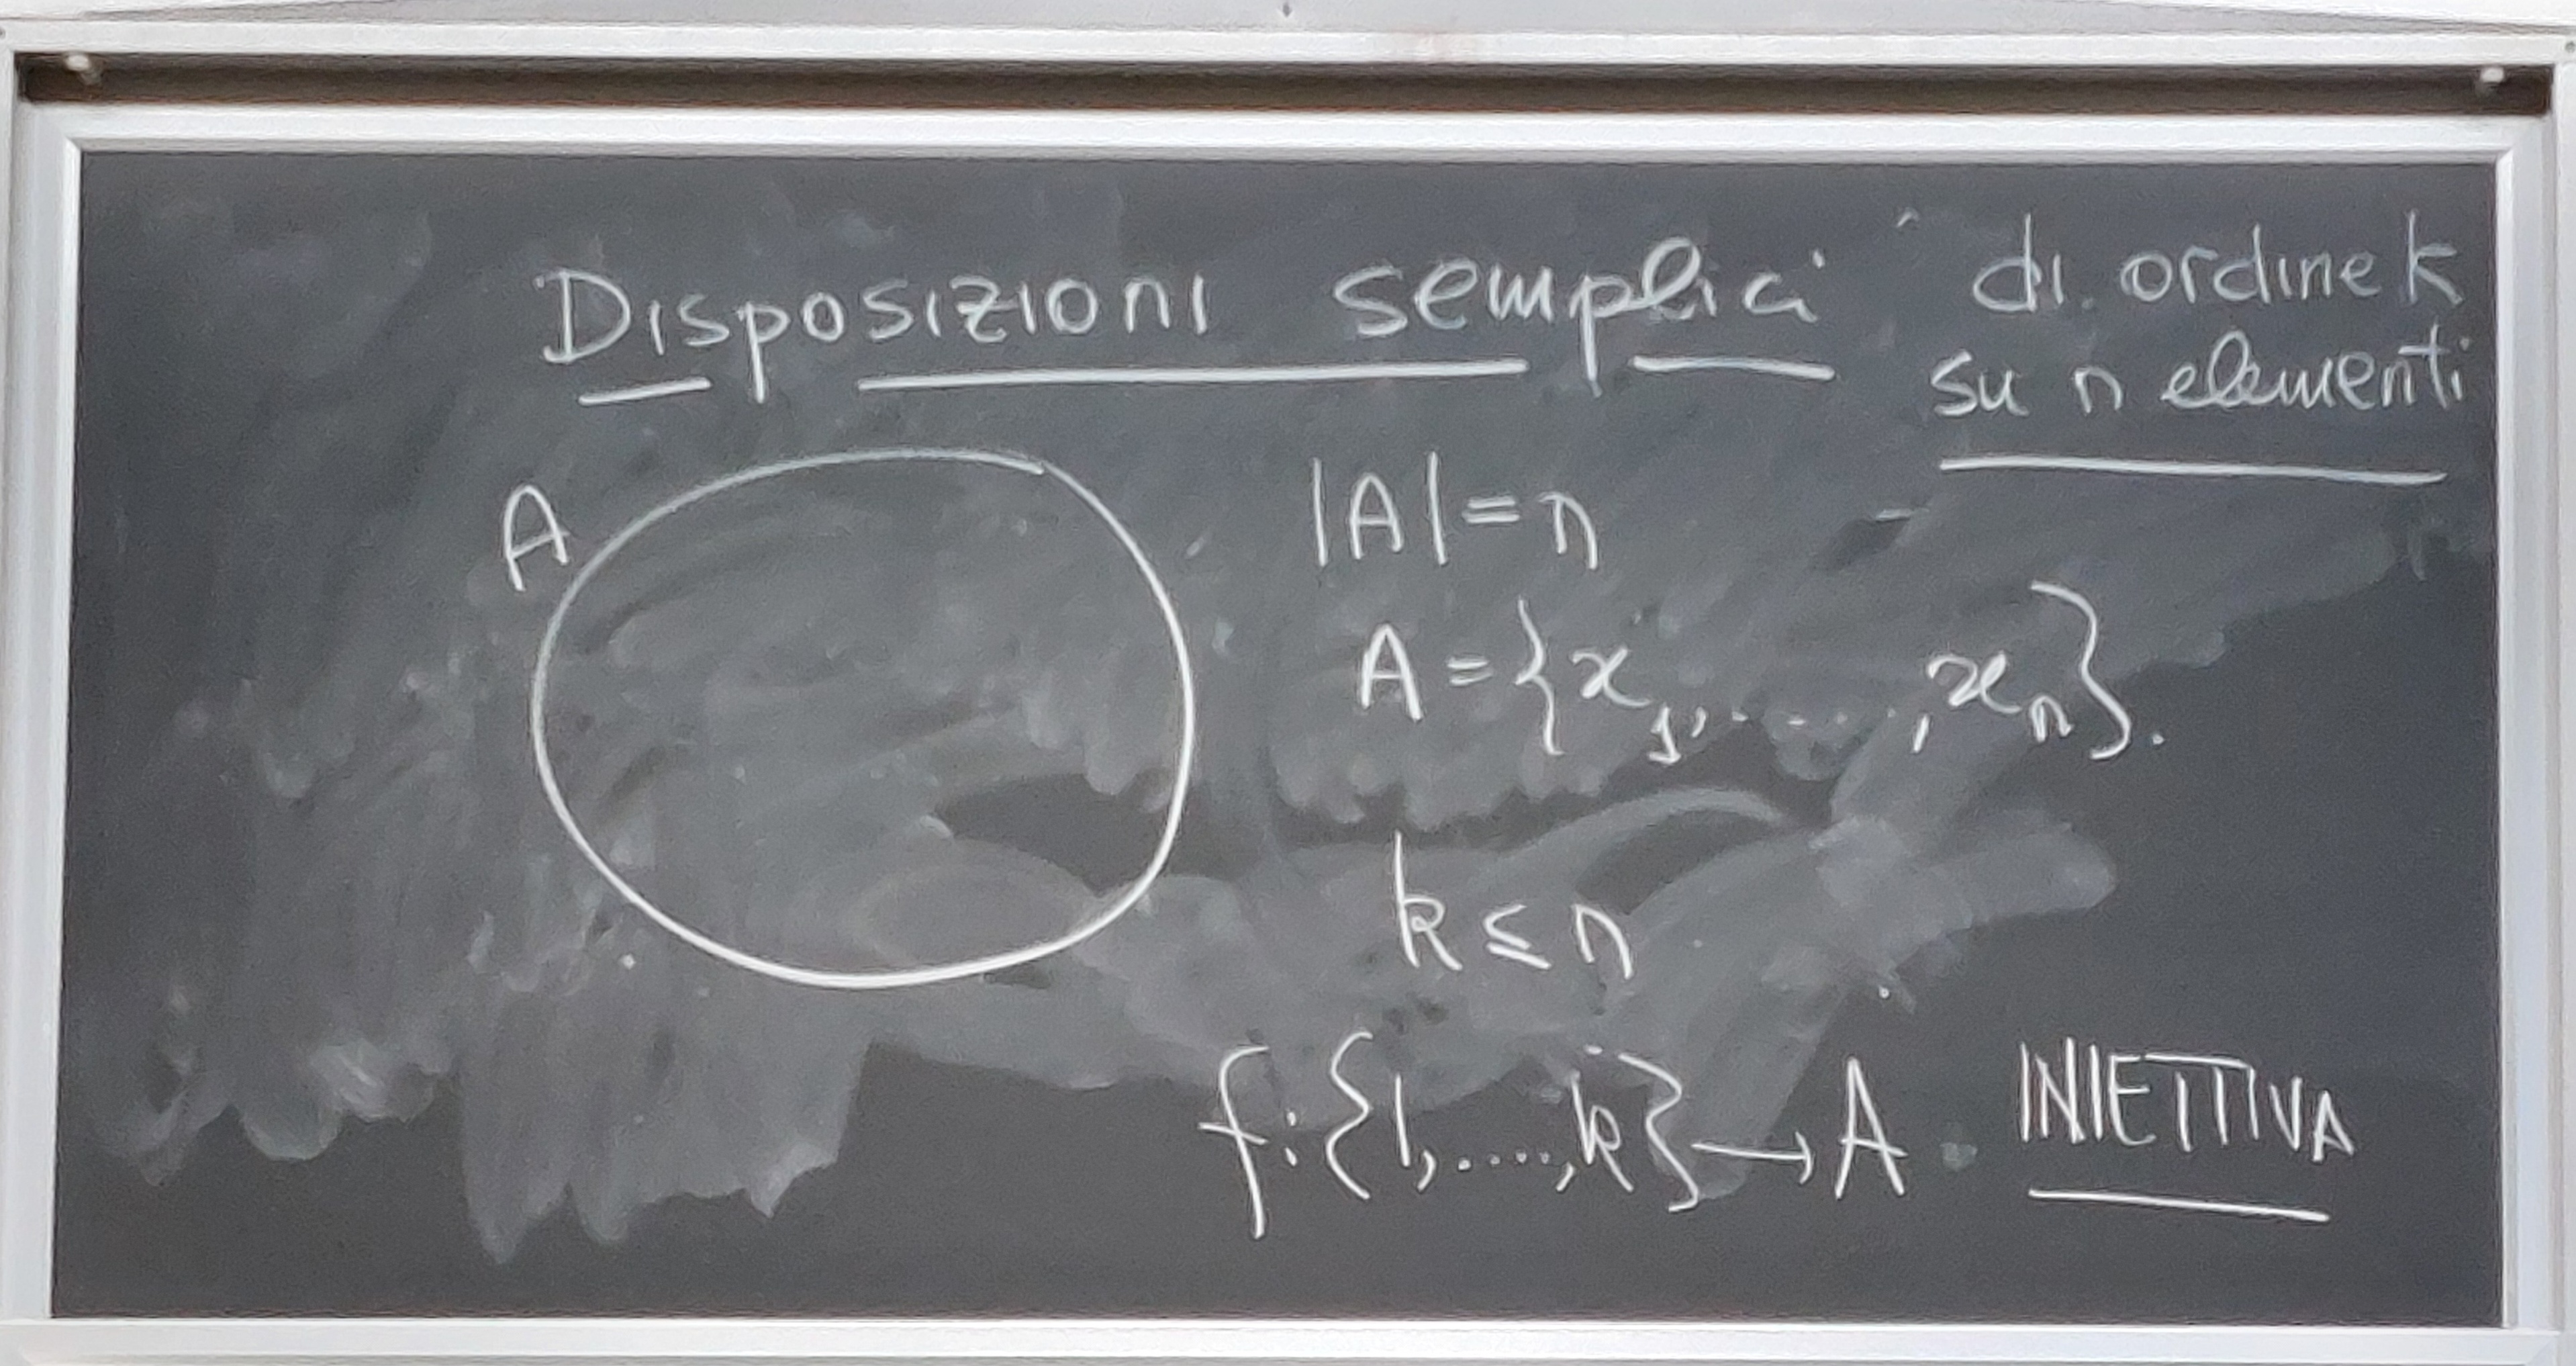 Disposizioni semplici di ordine k
su n elementi
A
|A| = n
A = {x₁, ....., xₙ}.
k ≤ n
f: {1, ...., k} → A INIETTIVA